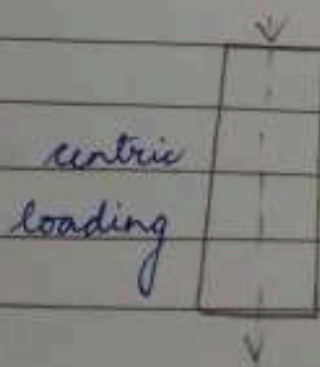 centric
loading